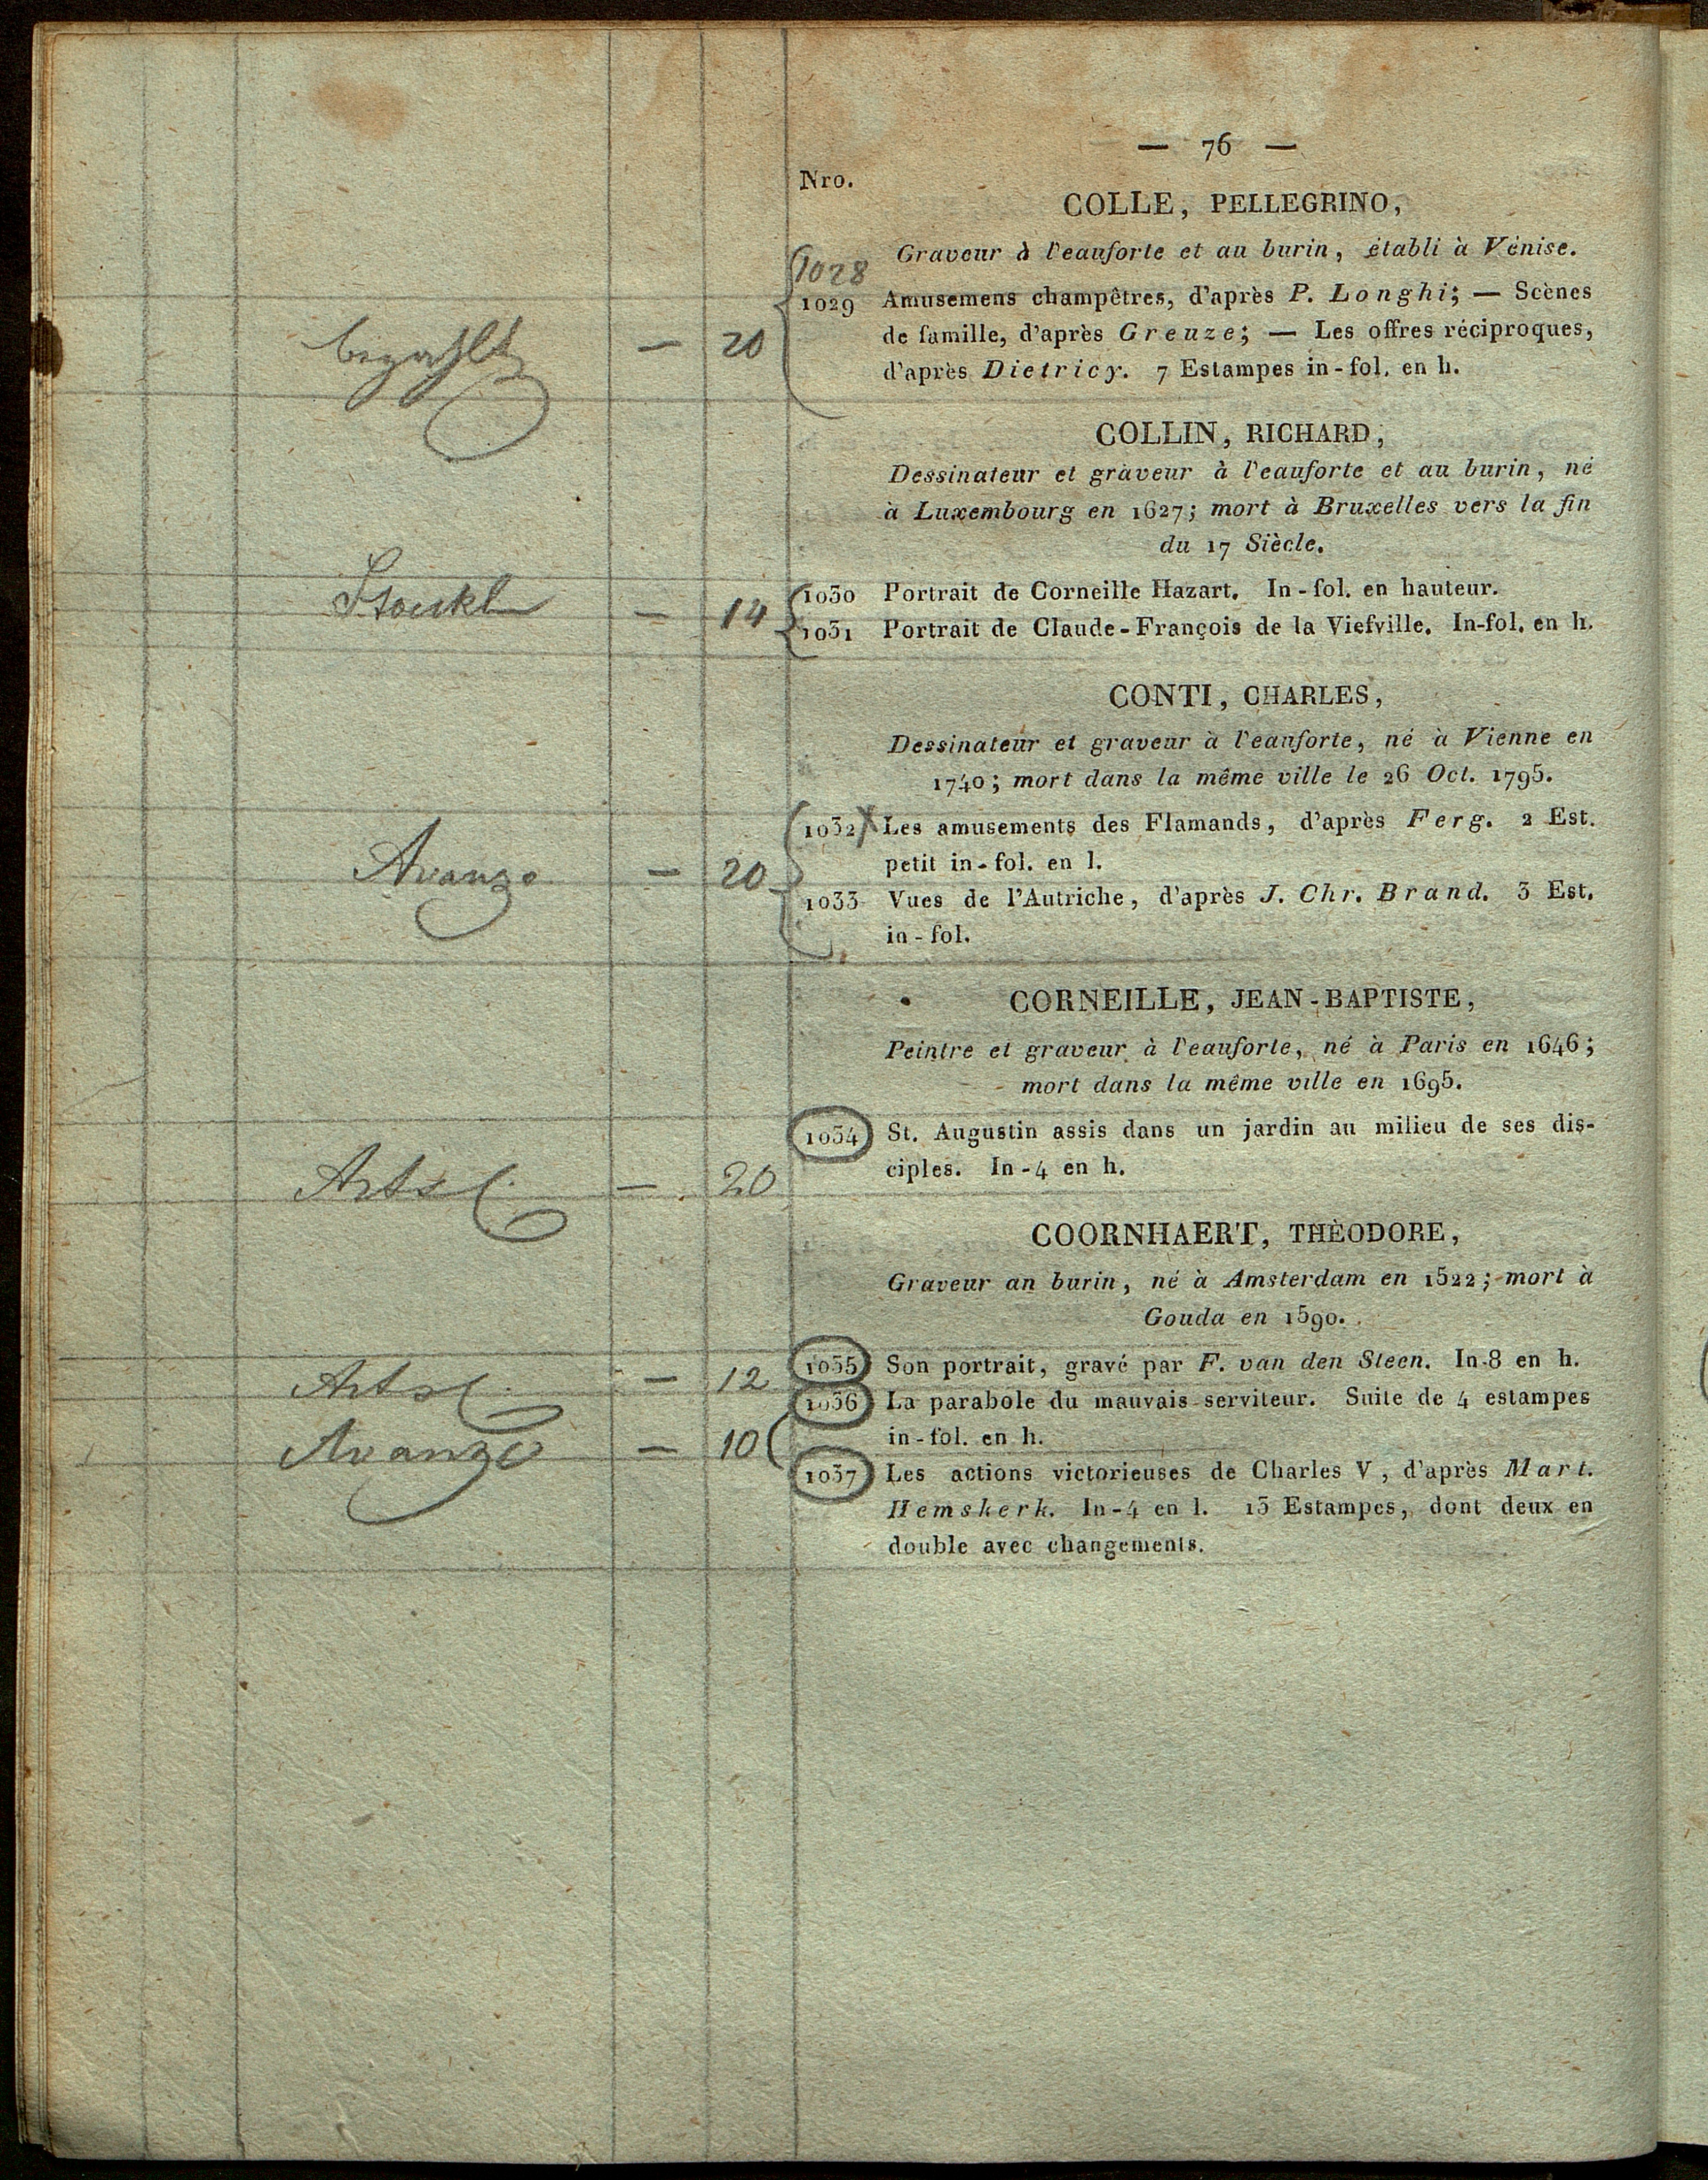 — 76 —
Nro.
COLLE, PELLEGRINO,
Graveur à l'eauforte et au burin, établi à Vénise.
1028
1029 Amusemens champêtres, d'après P. Longhi; — Scènes
bezahlt — 20 de famille, d'après Greuze; — Les offres réciproques,
d'après Dietricy. 7 Estampes in-fol. en h.
COLLIN, RICHARD,
Dessinateur et graveur à l'eauforte et au burin, né
à Luxembourg en 1627; mort à Bruxelles vers la fin
du 17 Siècle.
1030 Portrait de Corneille Hazart. In-fol. en hauteur.
Stoeckl — 14
1031 Portrait de Claude-François de la Viefville. In-fol. en h.
CONTI, CHARLES,
Dessinateur et graveur à l'eauforte, né à Vienne en
1740; mort dans la même ville le 26 Oct. 1795.
1032 Les amusements des Flamands, d'après Ferg. 2 Est.
Avanzo — 20 petit in-fol. en l.
1033 Vues de l'Autriche, d'après J. Chr. Brand. 3 Est.
in-fol.
CORNEILLE, JEAN-BAPTISTE,
Peintre et graveur à l'eauforte, né à Paris en 1646;
mort dans la même ville en 1695.
1034 St. Augustin assis dans un jardin au milieu de ses dis-
— 20 ciples. In-4 en h.
COORNHAERT, THÈODORE,
Graveur an burin, né à Amsterdam en 1522; mort à
Gouda en 1590.
— 12 1035 Son portrait, gravé par F. van den Steen. In-8 en h.
1036 La parabole du mauvais serviteur. Suite de 4 estampes
Avanzo — 10 in-fol. en h.
1037 Les actions victorieuses de Charles V, d'après Mart.
Hemskerk. In-4 en l. 13 Estampes, dont deux en
double avec changements.